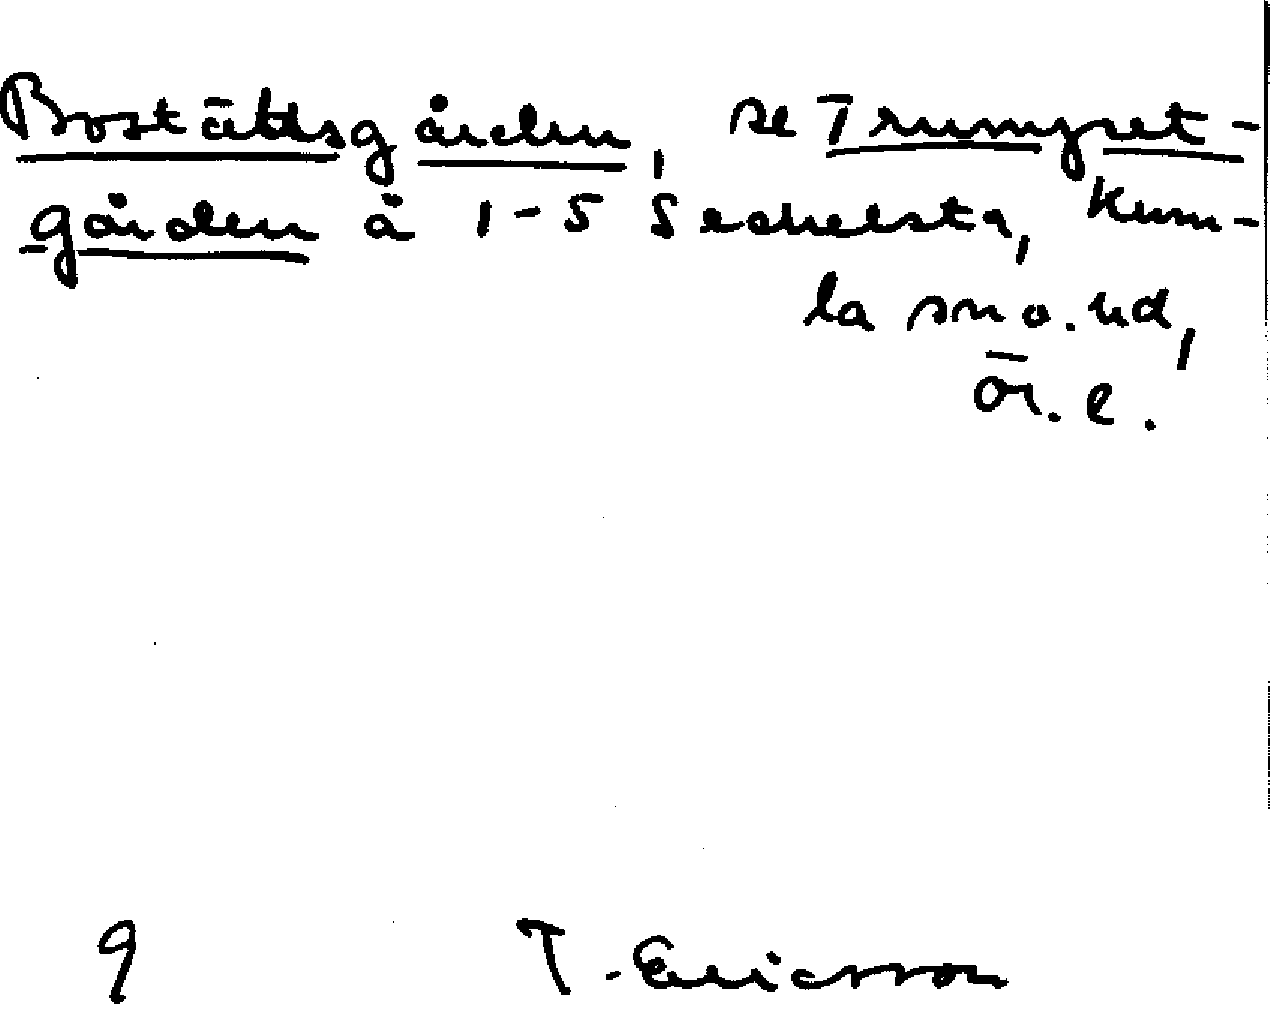 Bostättsgården, se Trumpet-
gården å 1-5 Sechelsta, Kum-
la sn o. hd,
Ör. l.
9 T. Ericsson